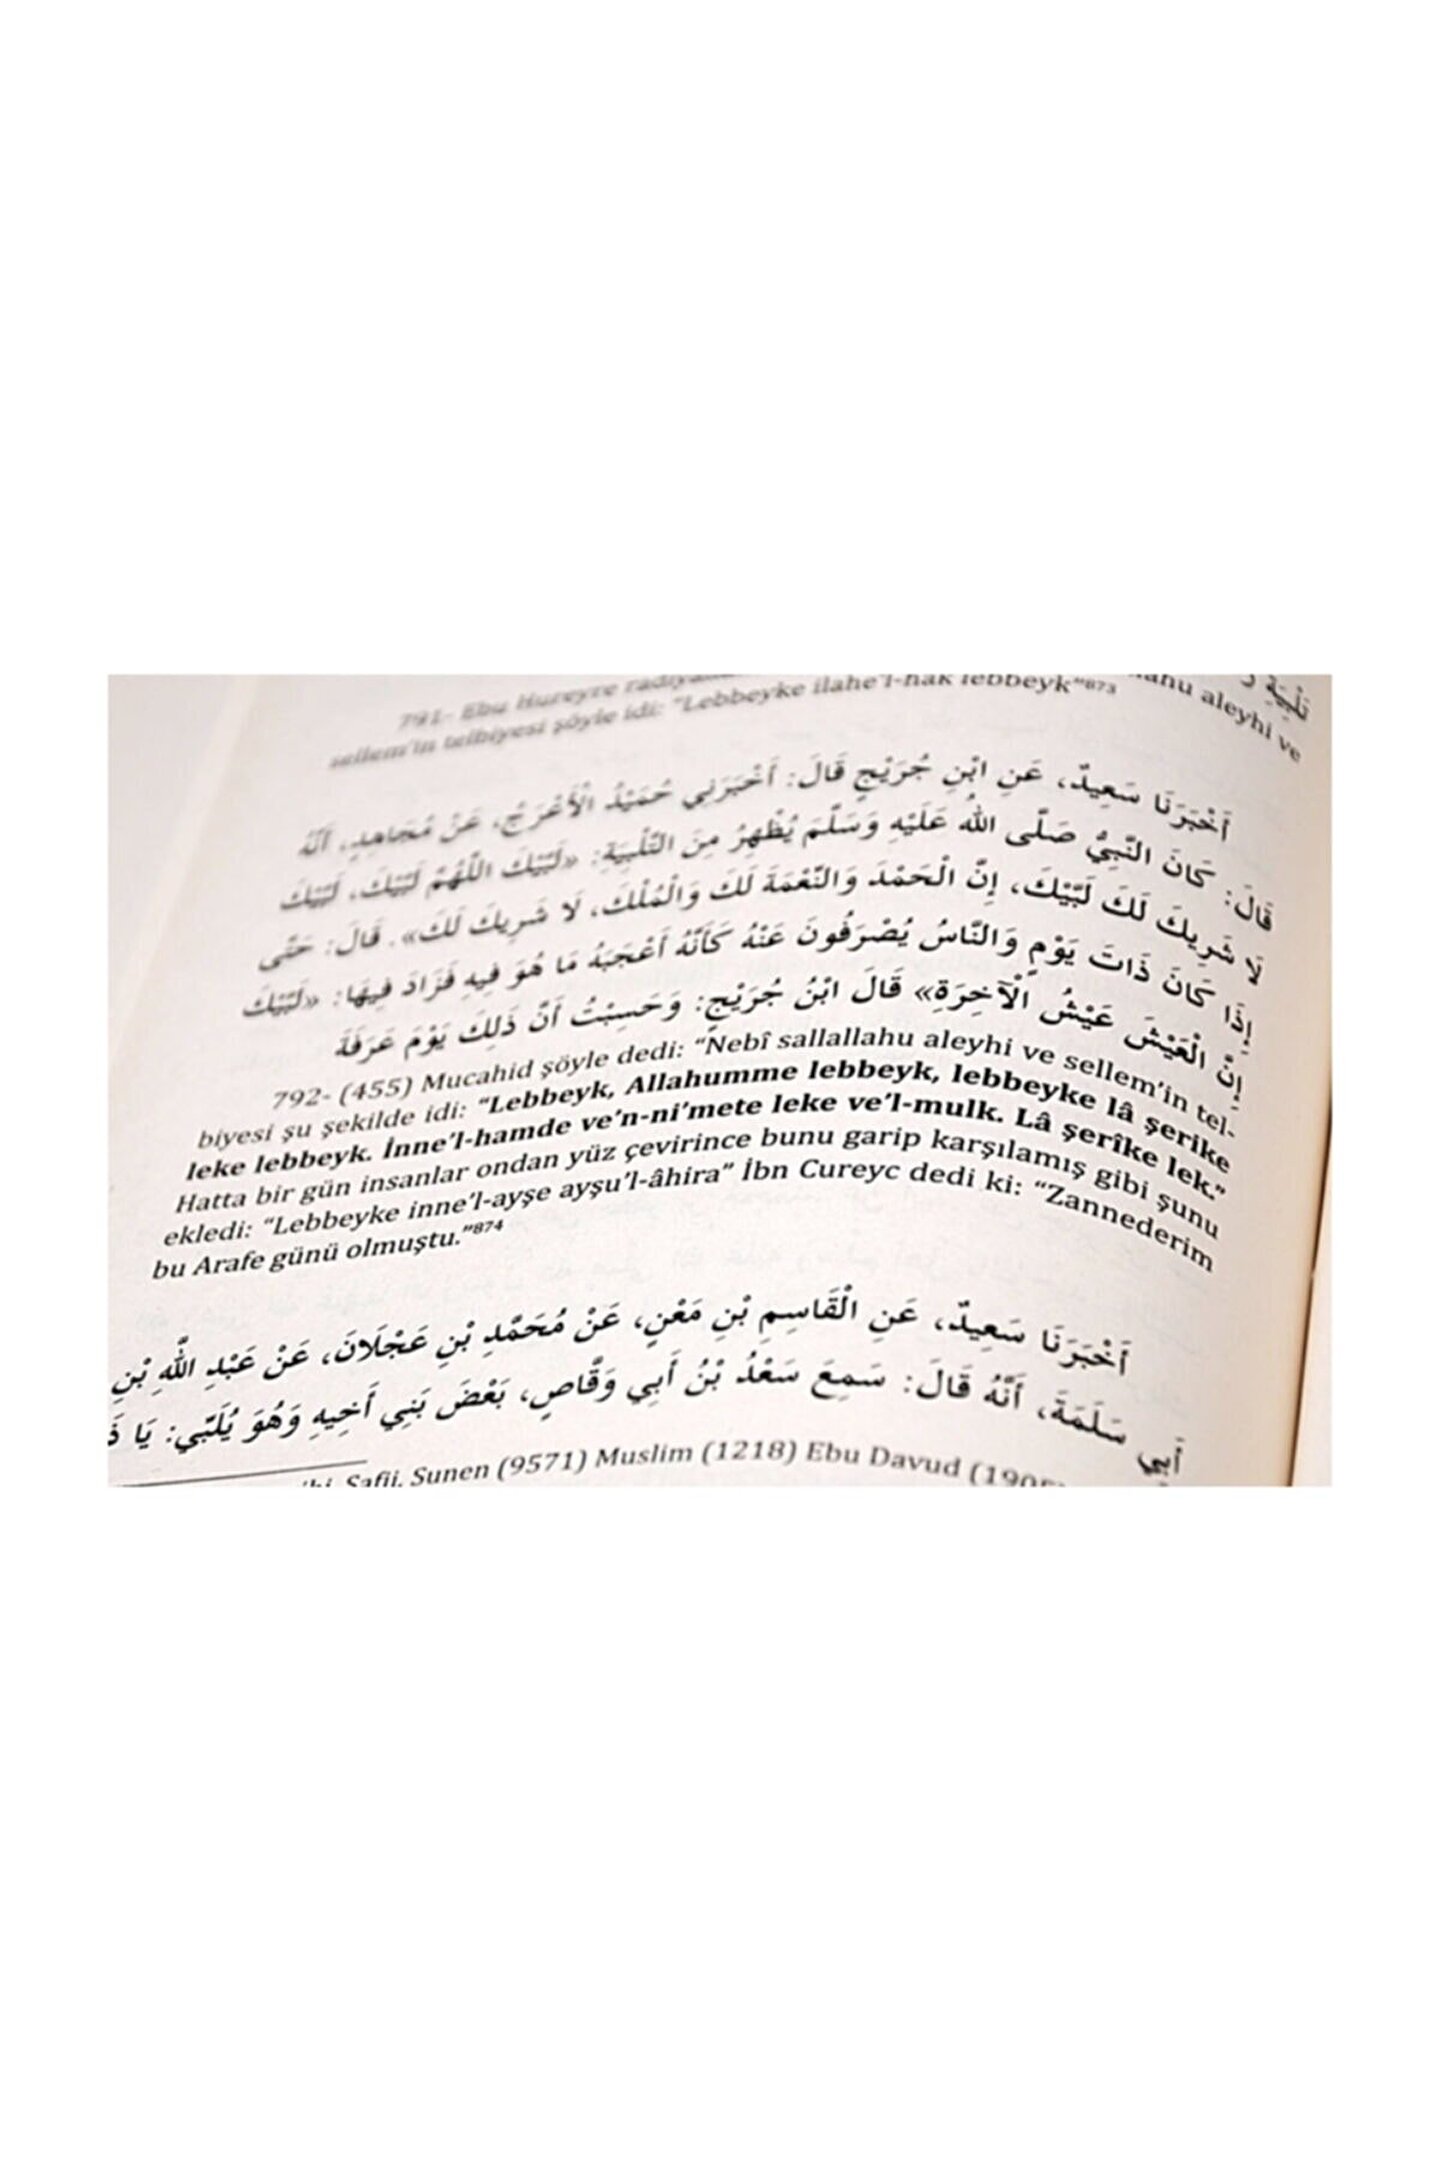 تَلْبِيَةِ
791- Ebu Hureyre aleyhi ve
sellem'in telbiyesi şöyle idi: "Lebbeyke ilahe'l-hak lebbeyk"873
أَخْبَرَنَا سَعِيدٌ، عَنِ ابْنِ جُرَيْجٍ قَالَ: أَخْبَرَنِي حُمَيْدٌ الْأَعْرَجُ، عَنْ مُجَاهِدٍ، أَنَّهُ
قَالَ: كَانَ النَّبِيُّ صَلَّى اللهُ عَلَيْهِ وَسَلَّمَ يُظْهِرُ مِنَ التَّلْبِيَةِ: «لَبَّيْكَ اللَّهُمَّ لَبَّيْكَ، لَبَّيْكَ
لَا شَرِيكَ لَكَ لَبَّيْكَ، إِنَّ الْحَمْدَ وَالنِّعْمَةَ لَكَ وَالْمُلْكَ، لَا شَرِيكَ لَكَ». قَالَ: حَتَّى
إِذَا كَانَ ذَاتَ يَوْمٍ وَالنَّاسُ يُصْرَفُونَ عَنْهُ كَأَنَّهُ أَعْجَبَهُ مَا هُوَ فِيهِ فَزَادَ فِيهَا: «لَبَّيْكَ
إِنَّ الْعَيْشَ عَيْشُ الْآخِرَةِ» قَالَ ابْنُ جُرَيْجٍ: وَحَسِبْتُ أَنَّ ذَلِكَ يَوْمَ عَرَفَةَ
792- (455) Mucahid şöyle dedi: "Nebî sallallahu aleyhi ve sellem'in tel-
biyesi şu şekilde idi: "Lebbeyk, Allahumme lebbeyk, lebbeyke lâ şerike
leke lebbeyk. İnne'l-hamde ve'n-ni'mete leke ve'l-mulk. Lâ şerîke lek."
Hatta bir gün insanlar ondan yüz çevirince bunu garip karşılamış gibi şunu
ekledi: "Lebbeyke inne'l-ayşe ayşu'l-âhira" İbn Cureyc dedi ki: "Zannederim
bu Arafe günü olmuştu."874
أَخْبَرَنَا سَعِيدٌ، عَنِ الْقَاسِمِ بْنِ مَعْنٍ، عَنْ مُحَمَّدِ بْنِ عَجْلَانَ، عَنْ عَبْدِ اللَّهِ بْنِ
أَبِي سَلَمَةَ، أَنَّهُ قَالَ: سَمِعَ سَعْدُ بْنُ أَبِي وَقَّاصٍ، بَعْضَ بَنِي أَخِيهِ وَهُوَ يُلَبِّي: يَا
Şafii, Sunen (9571) Muslim (1218) Ebu Davud